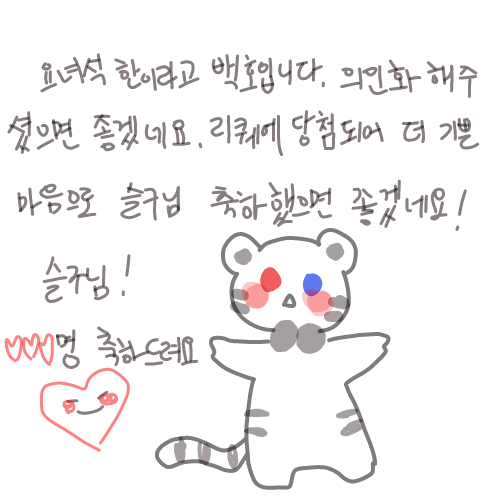 요녀석 한이라고 백호입니다. 의인화 해주
셨으면 좋겠네요. 리퀘에 당첨되어 더 기쁜
마음으로 슬구님 축하했으면 좋겠네요!
슬구님!
♡♡♡명 축하드려요